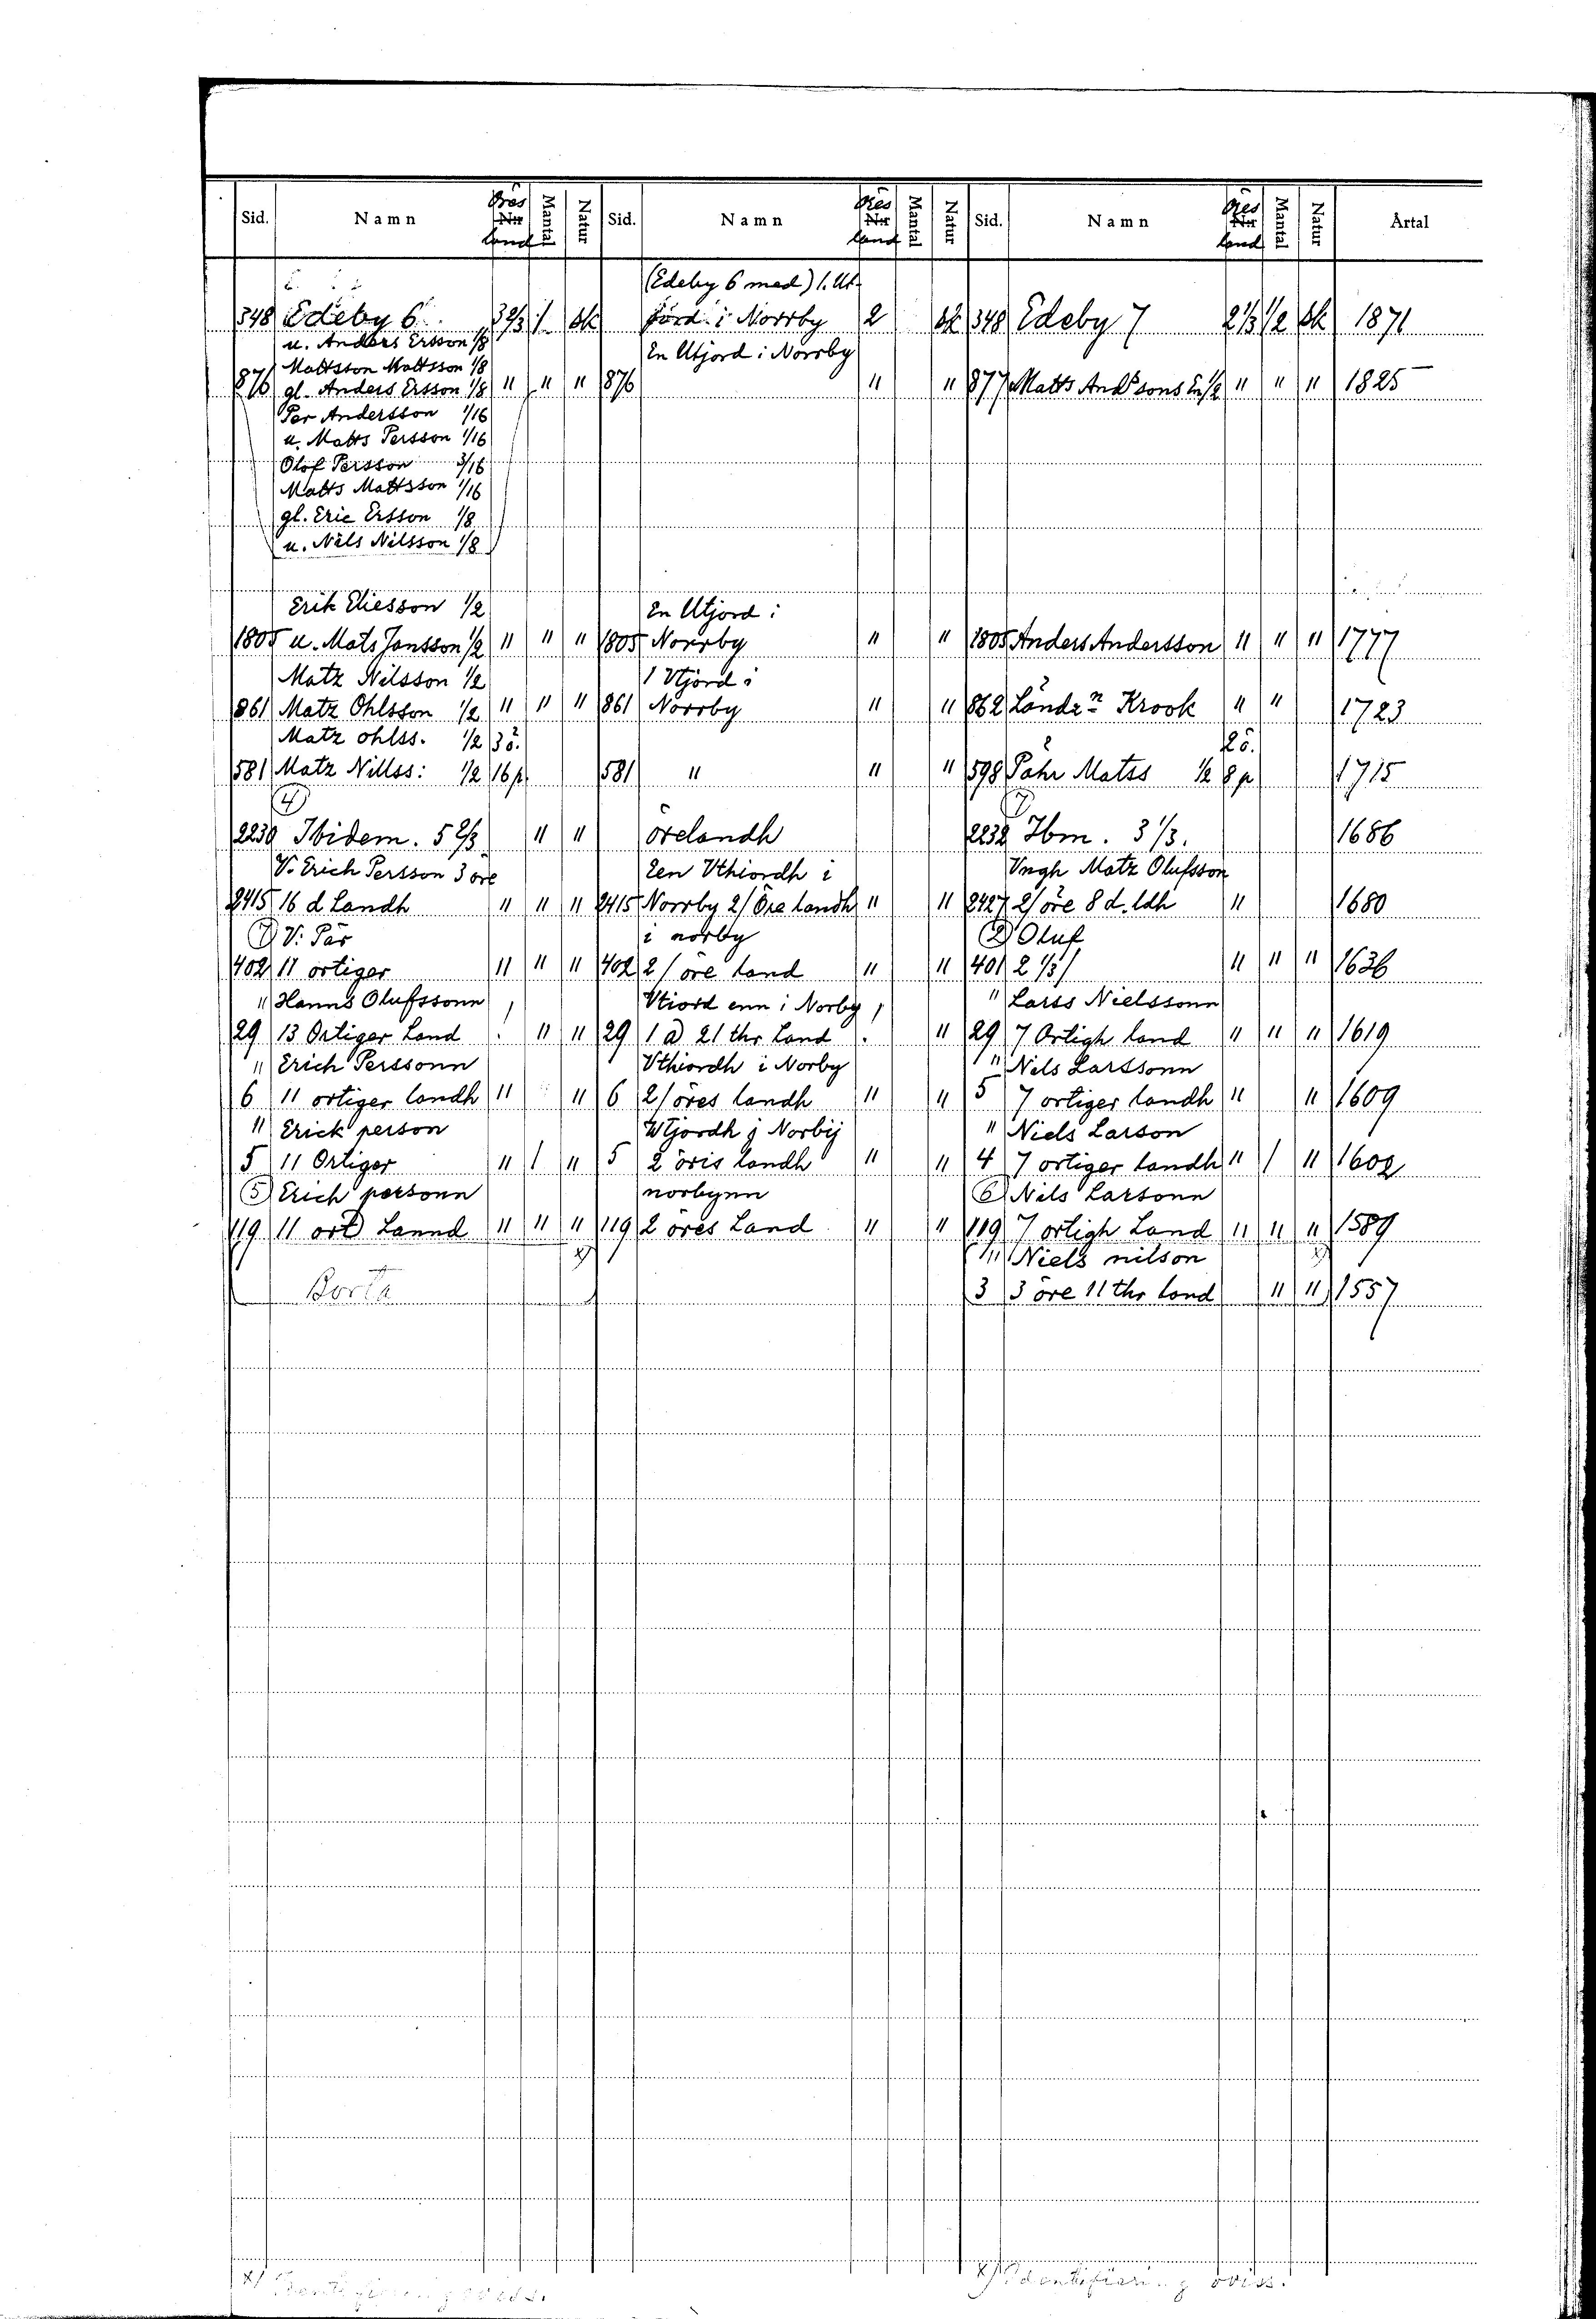 Sid. Namn Öres land Mantal Natur Sid. Namn Öres land Mantal Natur Sid. Namn Öres land Mantal Natur Årtal
(Edeby 6 med) 1. Ut-
348 Edeby 6 3 2/3 1 Sk jord i Norrby 2 Sk 348 Edeby 7 2 1/3 1/2 Sk 1871
u. Anders Ersson 1/8
En Utjord i Norrby
Mattsson Mattsson 1/8
876 gl. Anders Ersson 1/8 " " " 876 " " 877 Matts And:sons 1/2 " " " 1825
Per Andersson 1/16
u. Matts Persson 1/16
Olof Persson 3/16
Matts Mattsson 1/16
gl. Eric Ersson 1/8
u. Nils Nilsson 1/8
Erik Eliesson 1/2 En Utjord i
1805 u. Mats Jansson 1/2 " " " 1805 Norrby " " 1805 Anders Andersson " " " 1777
Matz Nilsson 1/2 1 Utjord i
861 Matz Ohlsson 1/2 " " " 861 Norrby " " 862 Krook " " 1723
Matz ohlss. 1/2 3ö. 2ö.
581 Matz Nillss: 1/2 16 p. 581 " " " 598 Pähr Matss 1/2 8 p 1715
2230 Ibidem. 5 2/3 " " örelandh 2232 Ibm. 3 1/3. 1686
V. Erich Persson 3 öre Een Vthiordh i Vngh Matz Olufsson
2415 16 d Landh " " " 2415 Norrby 2/ Öre landh " " 2427 2/öre 8 d. ldh " 1680
V: Pär i norby Oluf
402 11 örtiger " " " 402 2/ öre land " " 401 2 1/3/ " " " 1636
" Hanns Olufssonn Vtiord enn i Norby " Larss Nielssonn
29 13 Örtiger Land " " 29 1 a 21 thr Land " 29 7 Örtigh land " " " 1619
" Erich Perssonn Vthiordh i Norby " Nels Larssonn
6 11 örtiger landh " " 6 2/öres landh " " 5 7 örtiger landh " " 1609
" Erick person Wtjordh j Norbij " Niels Larson
5 11 Örtiger " 1 " 5 2 öris landh " " 4 7 örtiger landh " 1 " 1602
5) Erich personn norbynn 6) Nils Larsonn
119 11 ört Lannd " " " 119 2 öres Land " " 119 7 örtigh Land " " " 1589
x) " Niels nilson x)
Borta 3 3 öre 11 thr land " " 1557
x) Identifiering oviss. x) Identifiering oviss.